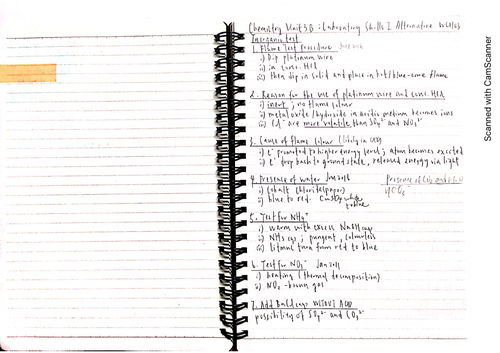 Chemistry Unit 3B : Laboratory Skills I Alternative WCH03
Inorganic test
1. Flame Test Procedure
i) Dip platinum wire
ii) in conc. HCl
iii) then dip in solid and place in hot/blue-cone flame
2. Reason for the use of platinum wire and conc. HCl
i) inert ; no flame colour
ii) metal oxide/hydroxide in acidic medium becomes ions
iii) Cl⁻ are more volatile than SO₄²⁻ and NO₃⁻
3. Cause of flame colour (likely in
i) e⁻ promoted to higher energy level ; atom becomes excited
ii) e⁻ drop back to ground state, released energy via light
4. Presence of water Jan 2016
Presence of CO₂ and H₂O
i) cobalt chloride (paper)
ii) blue to red. CuSO₄ white
to blue
HCO₃⁻
5. Test for NH₄⁺
i) warm with excess NaOH(aq)
ii) NH₃(g) ; pungent, colourless
iii) litmus turn from red to blue
6. Test for NO₃⁻ Jan 2011
i) heating (thermal decomposition)
ii) NO₂ - brown gas
7. Add BaCl₂(aq)
possibility of SO₄²⁻ and CO₃²⁻
Scanned with CamScanner